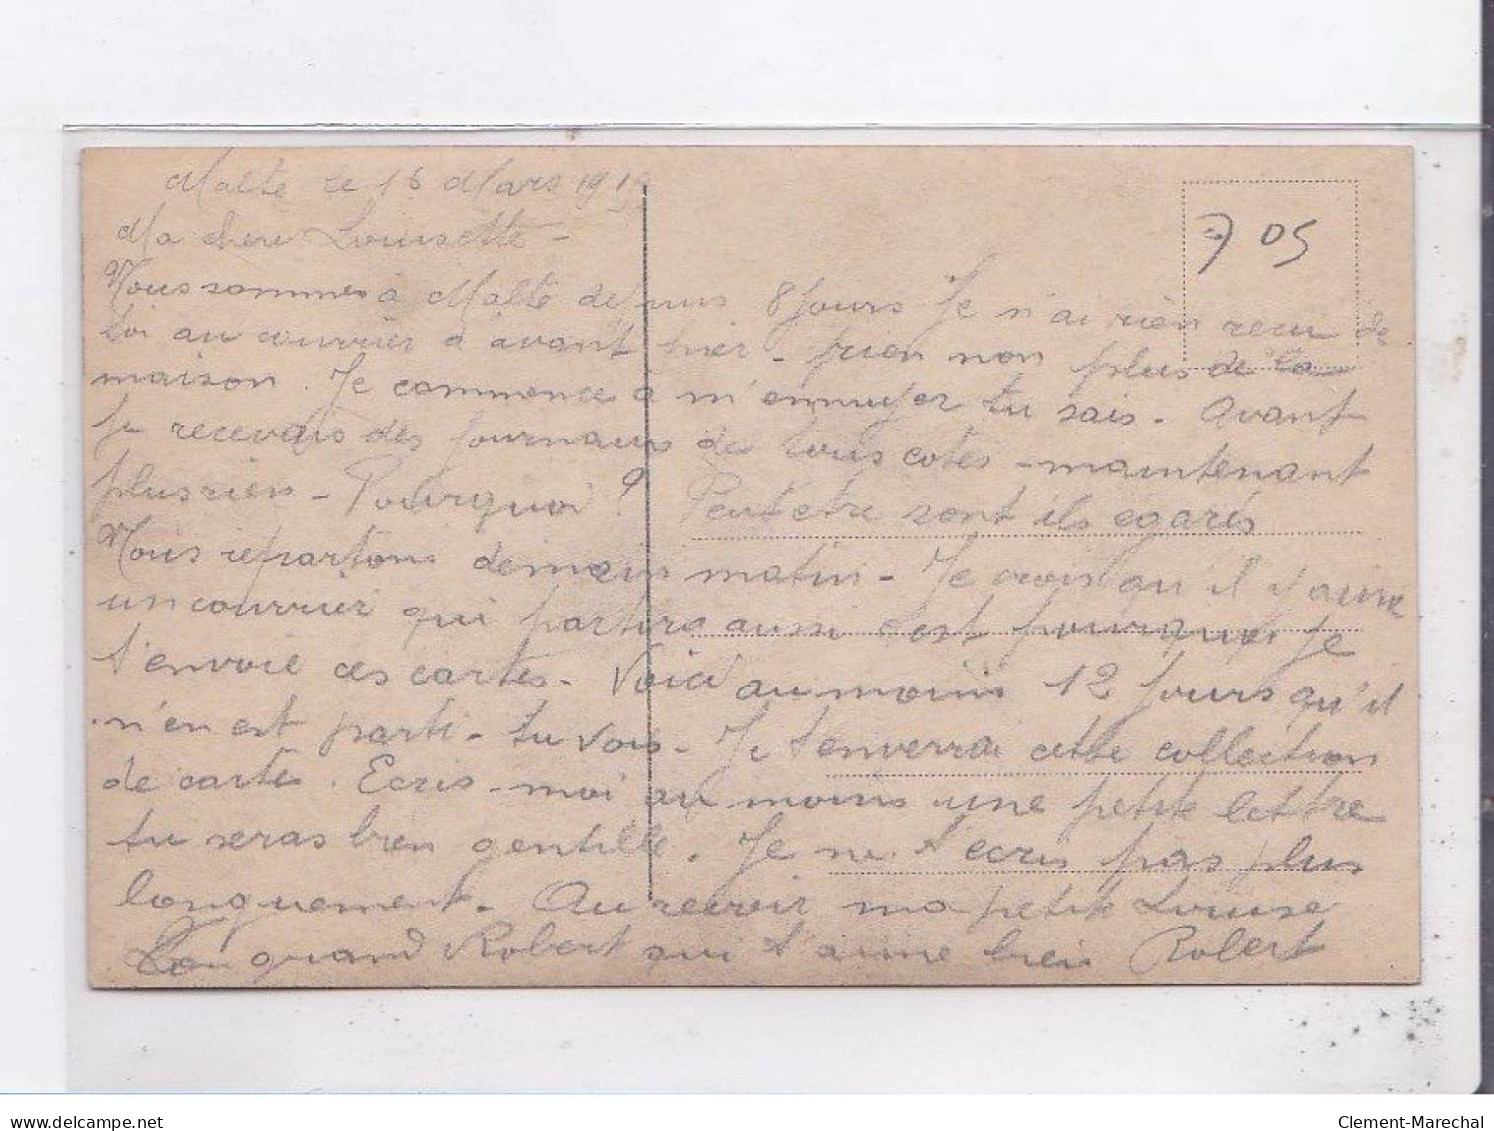 Malte le 16 Mars 1919
Ma chere Louisette -
Nous sommes à Malte depuis 8 jours Je n'ai rien recu de
toi au courrier d avant hier - rien non plus de la
maison. Je commence a m'ennuyer tu sais. Avant
je recevais des journaux de tous cotes - maintenant
plus rien - Pourquoi ? Peut etre sont ils egarés
Nous repartons demain matin - Je crois qu'il y aura
un courrier qui partira aussi c'est pourquoi je
t'envoie ces cartes. Voici au moins 12 jours qu'il
n'en est parti - tu vois - Je t'enverrai cette collection
de carte. Ecris-moi au moins une petite lettre
tu seras bien gentille. Je ne t'ecris pas plus
longuement. Au revoir ma petite Louise
Ton grand Robert qui t'aime bien Robert
705
delcampe.net
Clement-Marechal